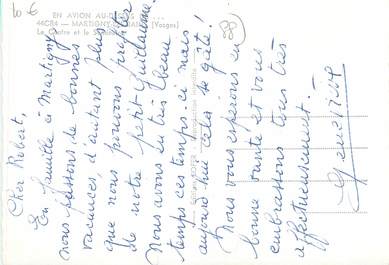 10 €
EN AVION AU-DESSUS
44C84 - MARTIGNY-LES-BAINS (Vosges)
Le Centre et le
28
Cher Robert,
En famille à Martigny
nous passons de bonnes
vacances, d'autant plus
que nous pouvons profiter
de notre petit Guillaume.
Nous avons eu très beau
temps ces temps-ci mais
aujourd'hui cela se gâte!
Nous vous espérons en
bonne santé et vous
embrassons tous très
affectueusement.